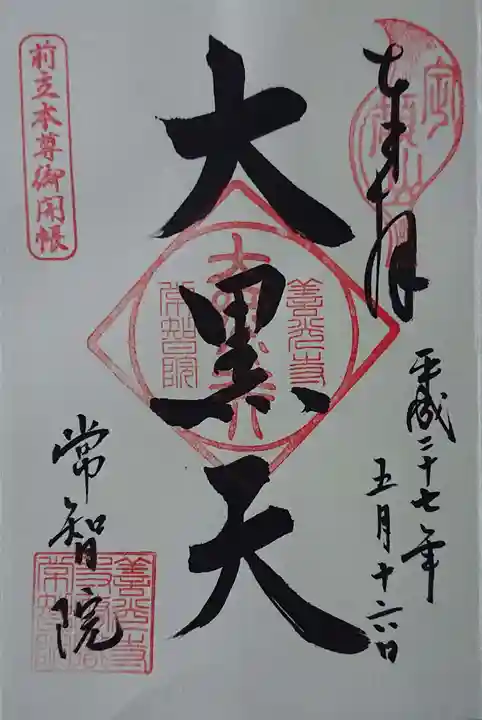 奉拝
平成二十七年
五月十六日
大黒天
善光寺
常智院
前立本尊御開帳
常智院
善光寺
常智院